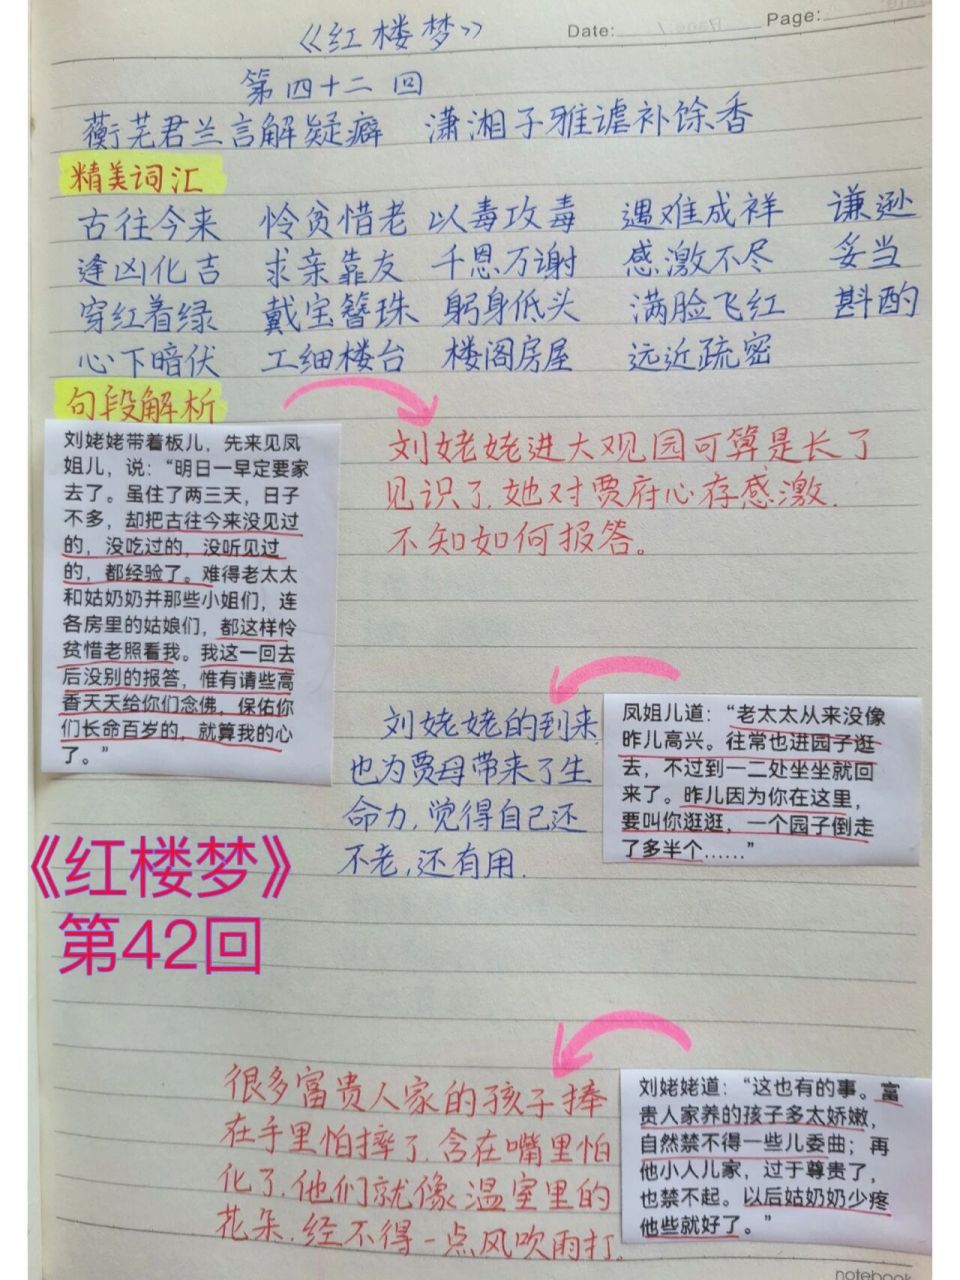 《红楼梦》
Date:
Page:
第四十二回
蘅芜君兰言解疑癖 潇湘子雅谑补馀香
精美词汇
古往今来 怜贫惜老 以毒攻毒 遇难成祥 谦逊
逢凶化吉 求亲靠友 千恩万谢 感激不尽 妥当
穿红着绿 戴宝簪珠 躬身低头 满脸飞红 斟酌
心下暗伏 工细楼台 楼阁房屋 远近疏密
句段解析
刘姥姥带着板儿，先来见凤
姐儿，说：“明日一早定要家
去了。虽住了两三天，日子
不多，却把古往今来没见过
的，没吃过的，没听见过
的，都经验了。难得老太太
和姑奶奶并那些小姐们，连
各房里的姑娘们，都这样怜
贫惜老照看我。我这一回去
后没别的报答，惟有请些高
香天天给你们念佛，保佑你
们长命百岁的，就算我的心
了。”
刘姥姥进大观园可算是长了
见识了，她对贾府心存感激，
不知如何报答。
刘姥姥的到来，
也为贾母带来了生
命力，觉得自己还
不老，还有用．
凤姐儿道：“老太太从来没像
昨儿高兴。往常也进园子逛
去，不过到一二处坐坐就回
来了。昨儿因为你在这里，
要叫你逛逛，一个园子倒走
了多半个……”
《红楼梦》
第42回
很多富贵人家的孩子捧
在手里怕摔了，含在嘴里怕
化了，他们就像温室里的
花朵，经不得一点风吹雨打。
刘姥姥道：“这也有的事。富
贵人家养的孩子多太娇嫩，
自然禁不得一些儿委曲；再
他小人儿家，过于尊贵了，
也禁不起。以后姑奶奶少疼
他些就好了。”
notebook